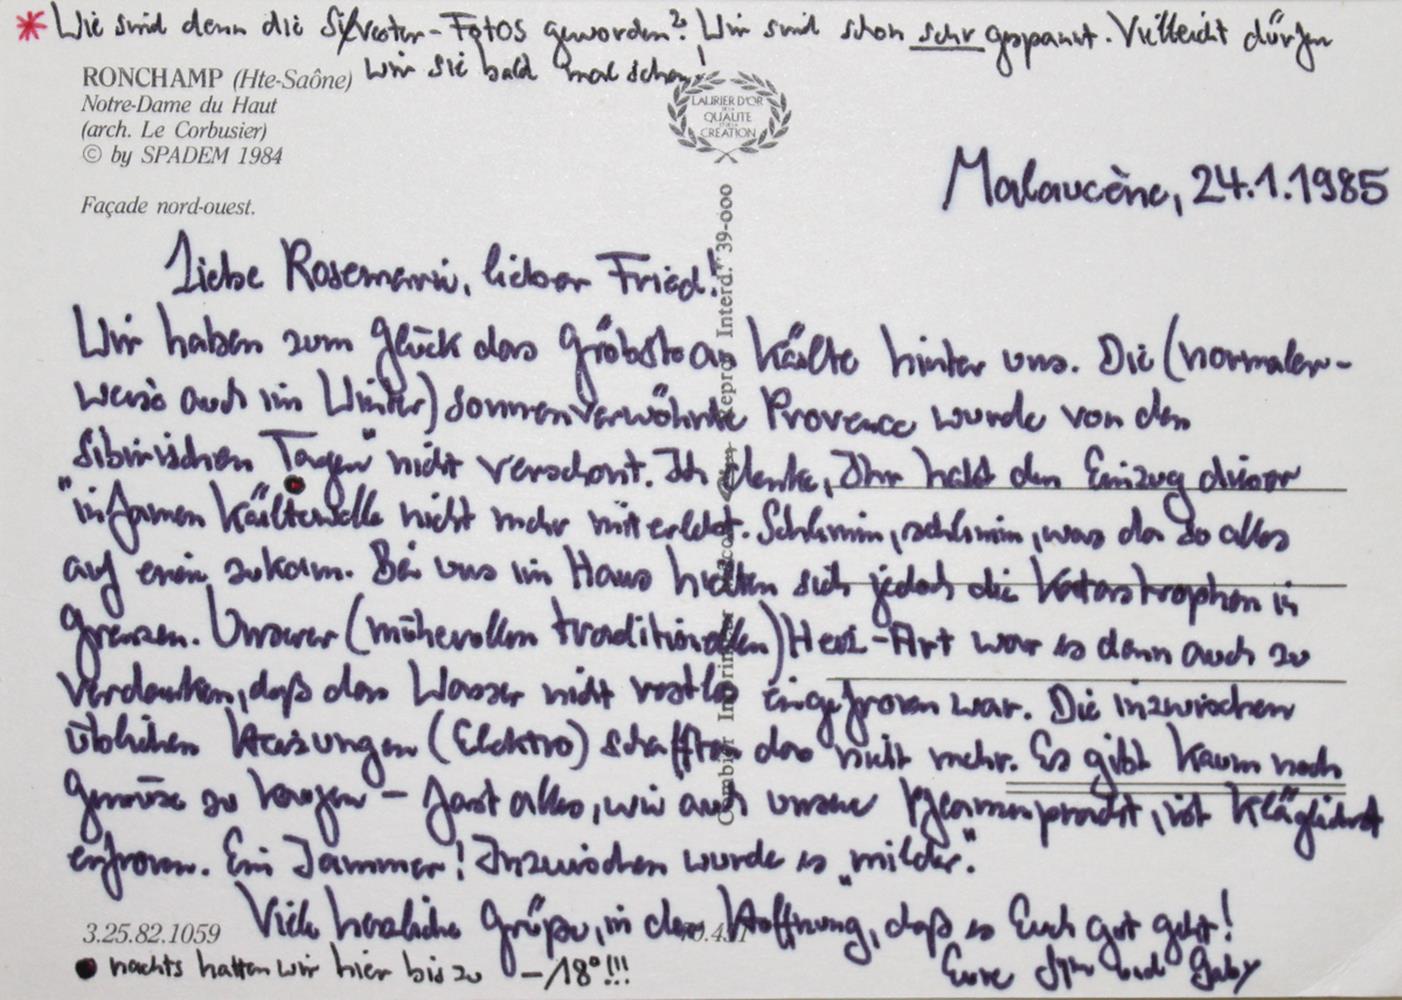 * Wie sind denn die Silvester-Fotos geworden? Wir sind schon sehr gespannt. Vielleicht dürfen
wir sie bald mal sehen!
RONCHAMP (Hte-Saône)
Notre-Dame du Haut
(arch. Le Corbusier)
© by SPADEM 1984
Façade nord-ouest.
LAURIER D'OR
DE LA
QUALITE
ET DE LA
CREATION
Malaucène, 24.1.1985
Liebe Rosemarie, lieber Fried!
Wir haben zum Glück das Gröbste an Kälte hinter uns. Die (normaler-
weise auch im Winter) sonnenverwöhnte Provence wurde von den
"sibirischen Tagen" nicht verschont. Ich denke, Ihr habt den Einzug dieser
infamen Kältewelle nicht mehr miterlebt. Schlimm, schlimm, was da so alles
auf einen zukam. Bei uns im Haus hielten sich jedoch die Katastrophen in
Grenzen. Unserer (mühevollen traditionellen) Heiz-Art war es dann auch zu
verdanken, daß das Wasser nicht restlos eingefroren war. Die inzwischen
üblichen Heizungen (Elektro) schafften das nicht mehr. Es gibt kaum noch
Gemüse zu kaufen - fast alles, wie auch unsere Pflanzenpracht, ist kläglichst
erfroren. Ein Jammer! Inzwischen wurde es „milder".
Viele herzliche Grüße, in der Hoffnung, daß es Euch gut geht!
Eure und Gaby
3.25.82.1059
● nachts hatten wir hier bis zu -18°!!!
Combier Imprimeur Mâcon Repro. Interd." 39-000